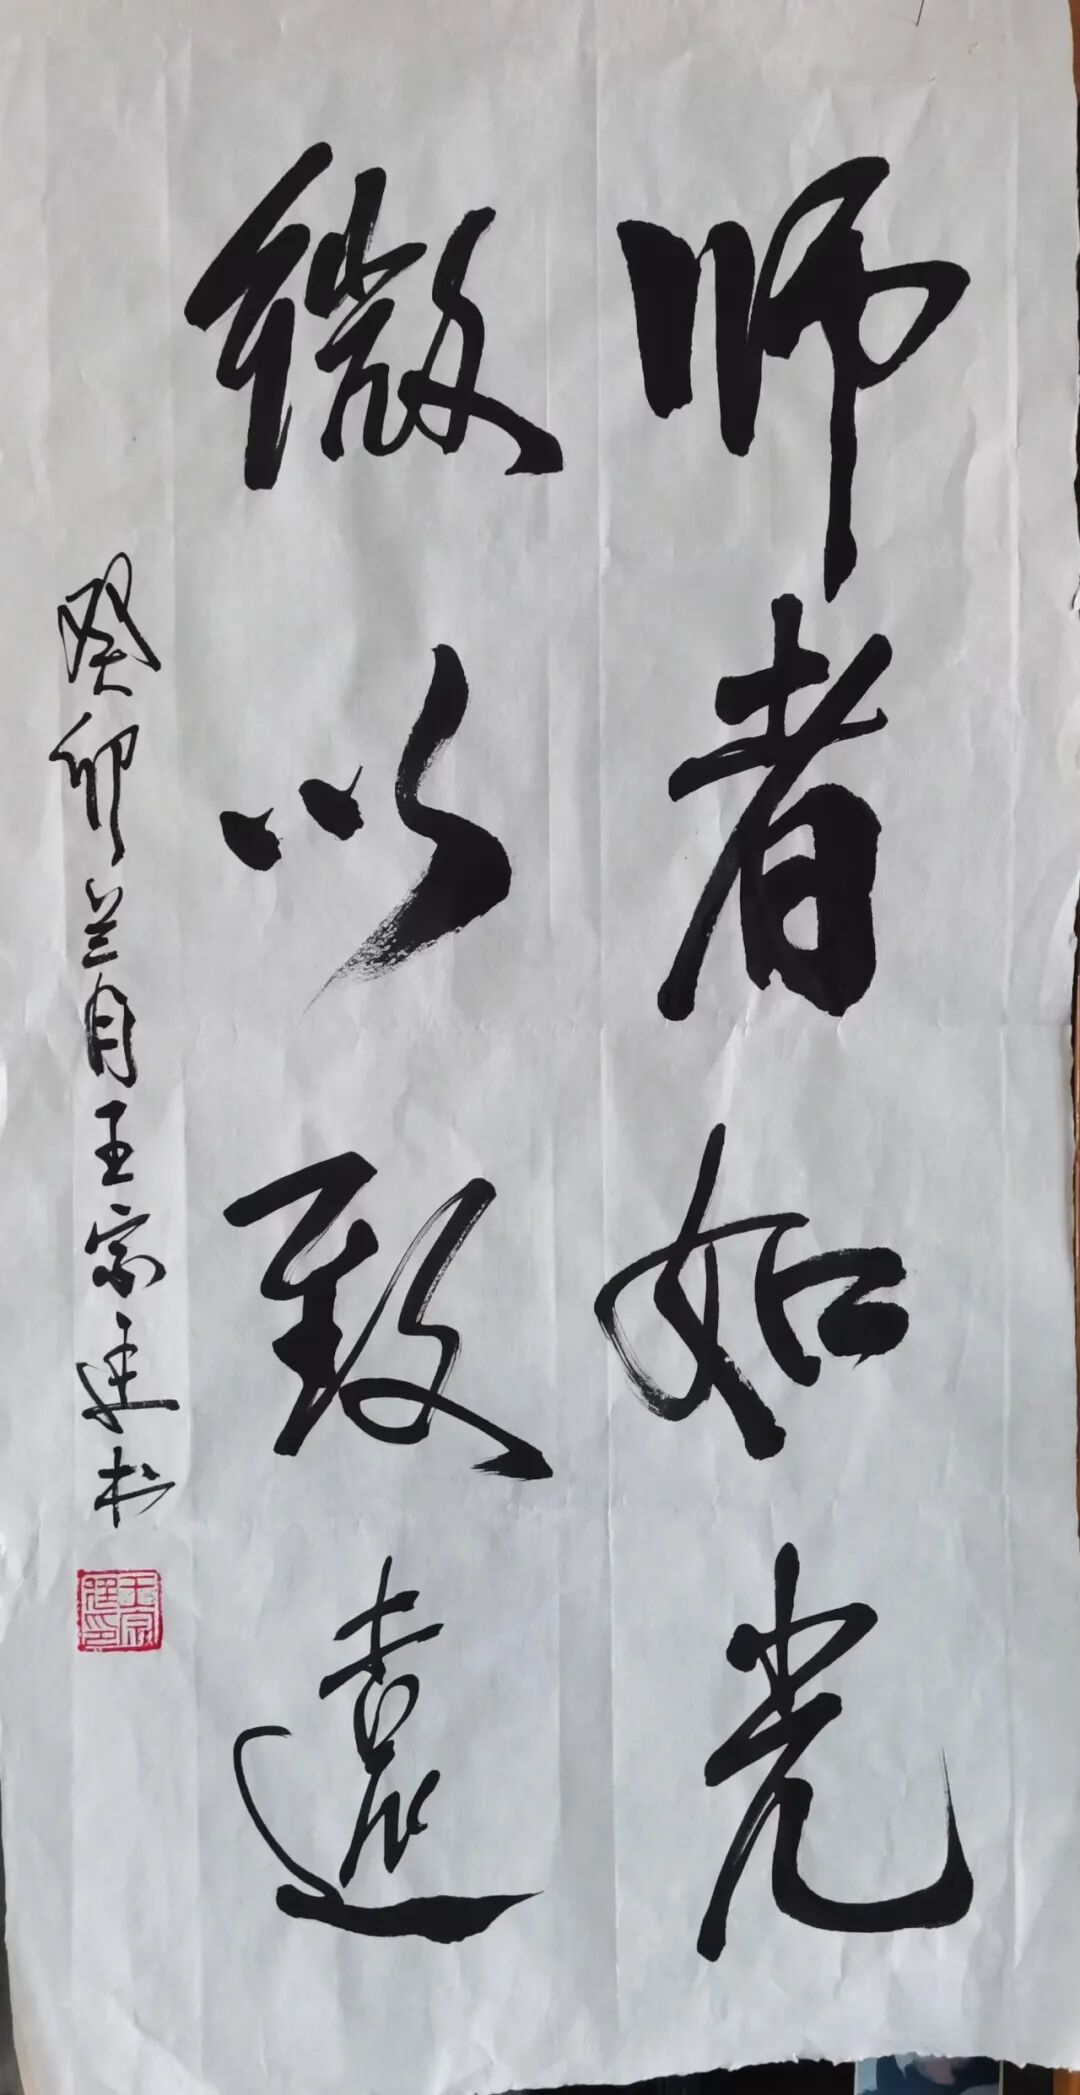 师者如光
微以致遠
癸卯兰月王宗廷书
王宗廷印